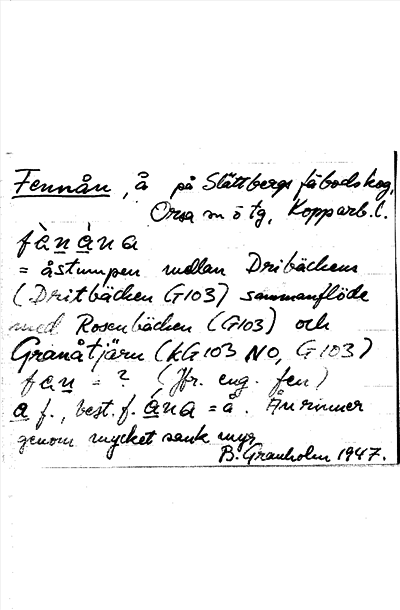 Fennån, å på Slättbergs fäbodskog,
Orsa sn ö tg, Kopparb. l.
fὰnána
= åstumpen mellan Dribäckens
(Dritbäcken G103) sammanflöde
med Rosenbäcken (G103) och
Granåtjärn (kG103 NO, G103)
fan = ? (Jfr. eng. fen)
a f., best. f. ána = å. Ån rinner
genom mycket sank myr.
B. Granholm 1947.